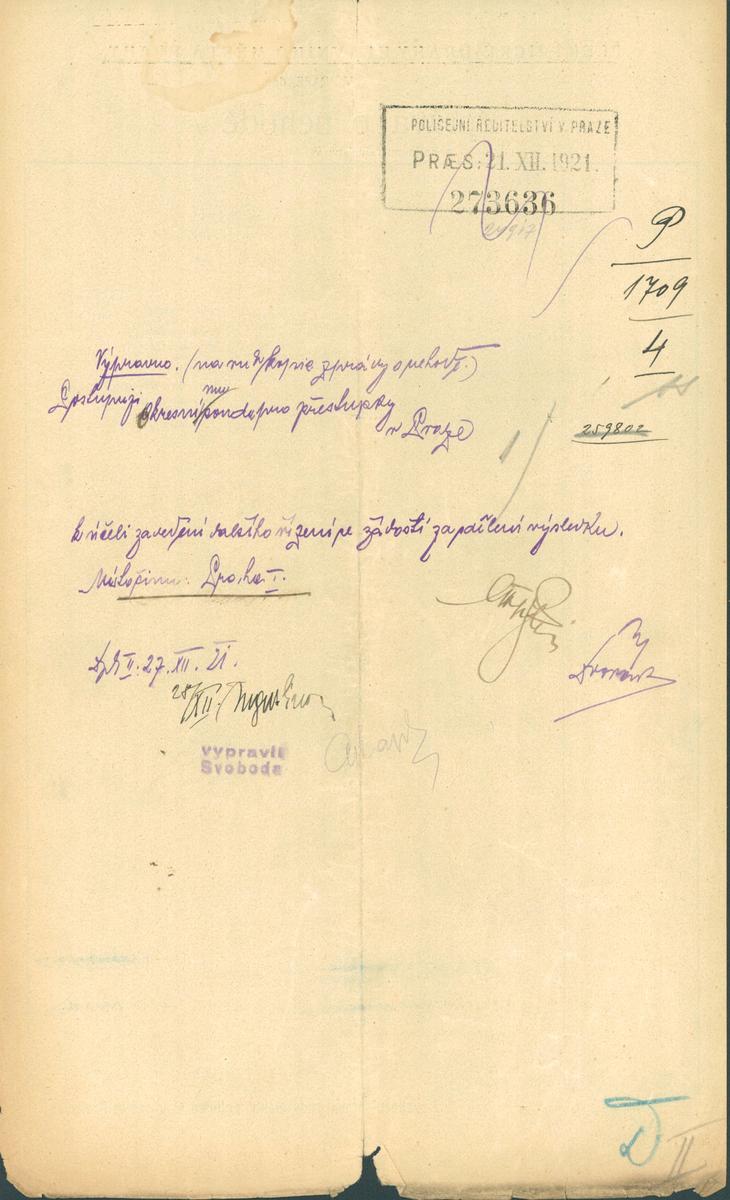 POLICEJNÍ ŘEDITELSTVÍ V PRAZE
PRÆS: 21. XII. 1921.
273636
P
1709
4
259802
Výpravno. (na rub kopie zprávy o nehodě.)
Postupuji okresnímu soudu pro přestupky
v Praze
k účeli zavedení dalšího řízení se žádostí za sdělení výsledku.
Místopisu: Praha I.
II. 27. XII. 21.
28/XII.
vypravil
Svoboda
Dvořák
D
II